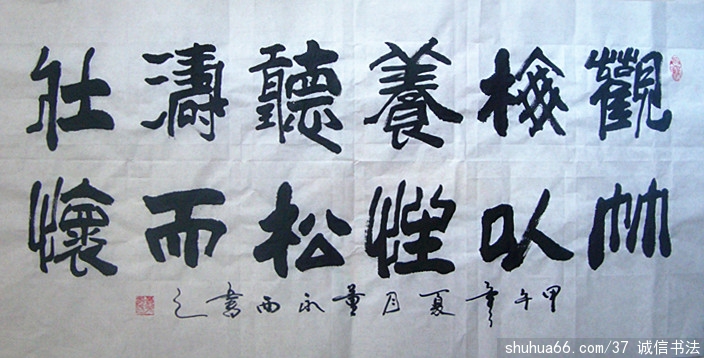 觀竹
梅以
養性
聽松
濤而
壯懷
甲午年夏月董永西書之
shuhua66.com/37 诚信书法